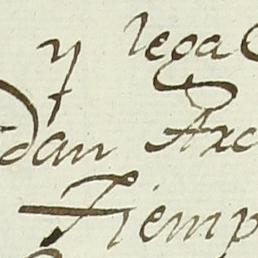 y lega
dan Axc
Tiemp